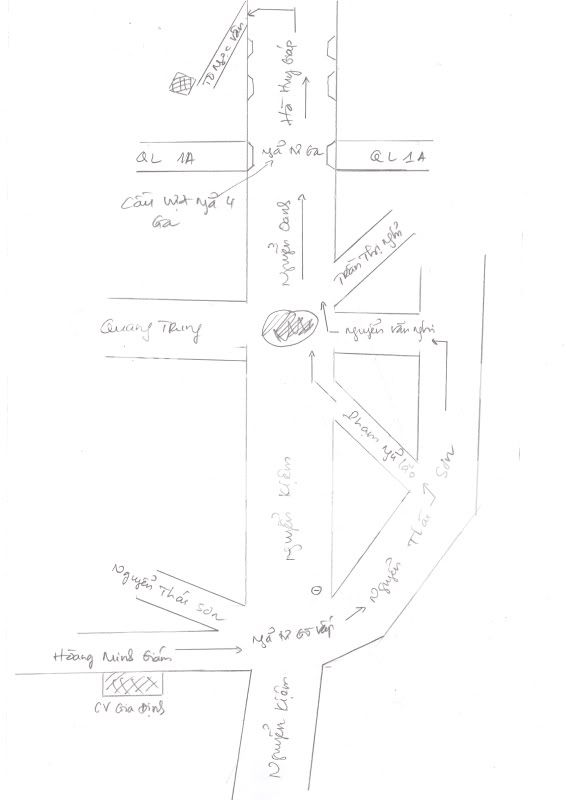 Tô Ngọc Vân
Hà Huy Giáp
QL 1A
Ngã Tư Ga
QL 1A
Cầu vượt Ngã 4
Ga
Nguyễn Oanh
Trần Thị Nghỉ
Quang Trung
Nguyễn Văn Nghi
Phạm Ngũ Lão
Nguyễn Kiệm
Nguyễn Thái Sơn
Nguyễn Thái Sơn
Ngã N Gò Vấp
Hoàng Minh Giám
CV Gia Định
Nguyễn Kiệm